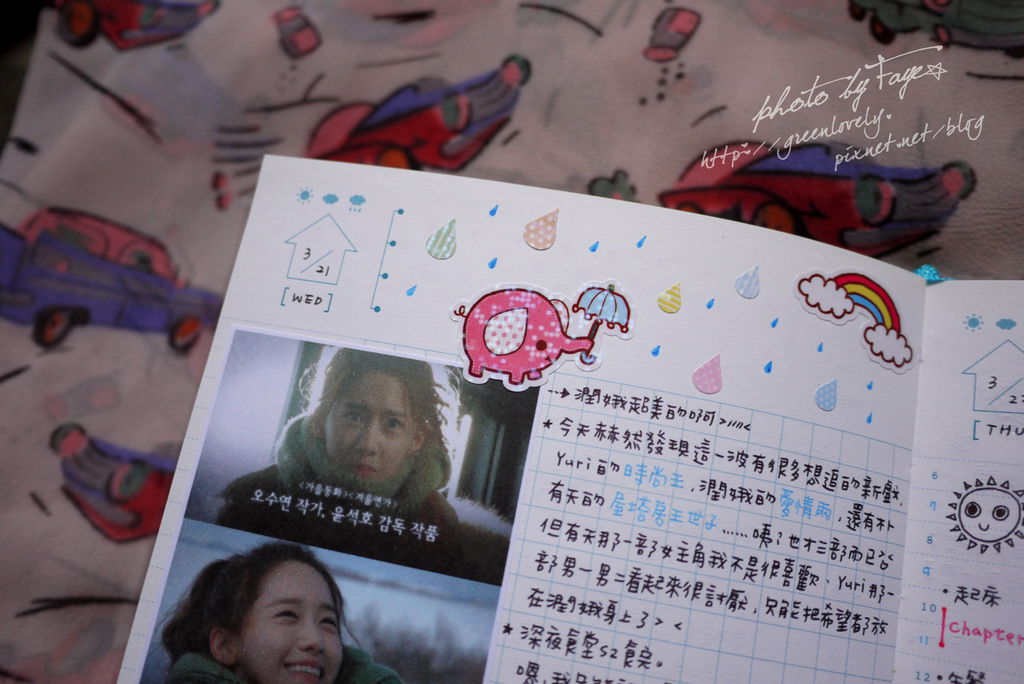 photo by Faye☆
http://greenlovely.
pixnet.net/blog
3/21
[WED]
<가을동화><겨울연가>
오수연 작가, 윤석호 감독 작품
--→ 潤娥超美的啊>////<
★今天赫然發現這一波有很多想追的新戲,
Yuri的時尚王,潤娥的愛情雨,還有朴
有天的屋塔房王世子......咦?也才三部而已
但有天那一部女主角我不是很喜歡、Yuri那一
部男一男二看起來很討厭,只能把希望都放
在潤娥身上了> <
★深夜食堂S2 食完。
嗯,我
3/22
[THU
6
7
8
9
•起床
10
11
Chapter
12
•午餐